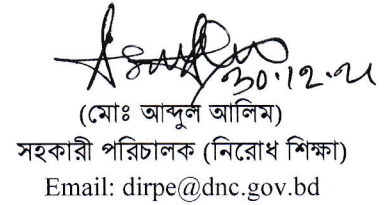 30.12.21
(মোঃ আব্দুল আলিম)
সহকারী পরিচালক (নিরোধ শিক্ষা)
Email: dirpe@dnc.gov.bd